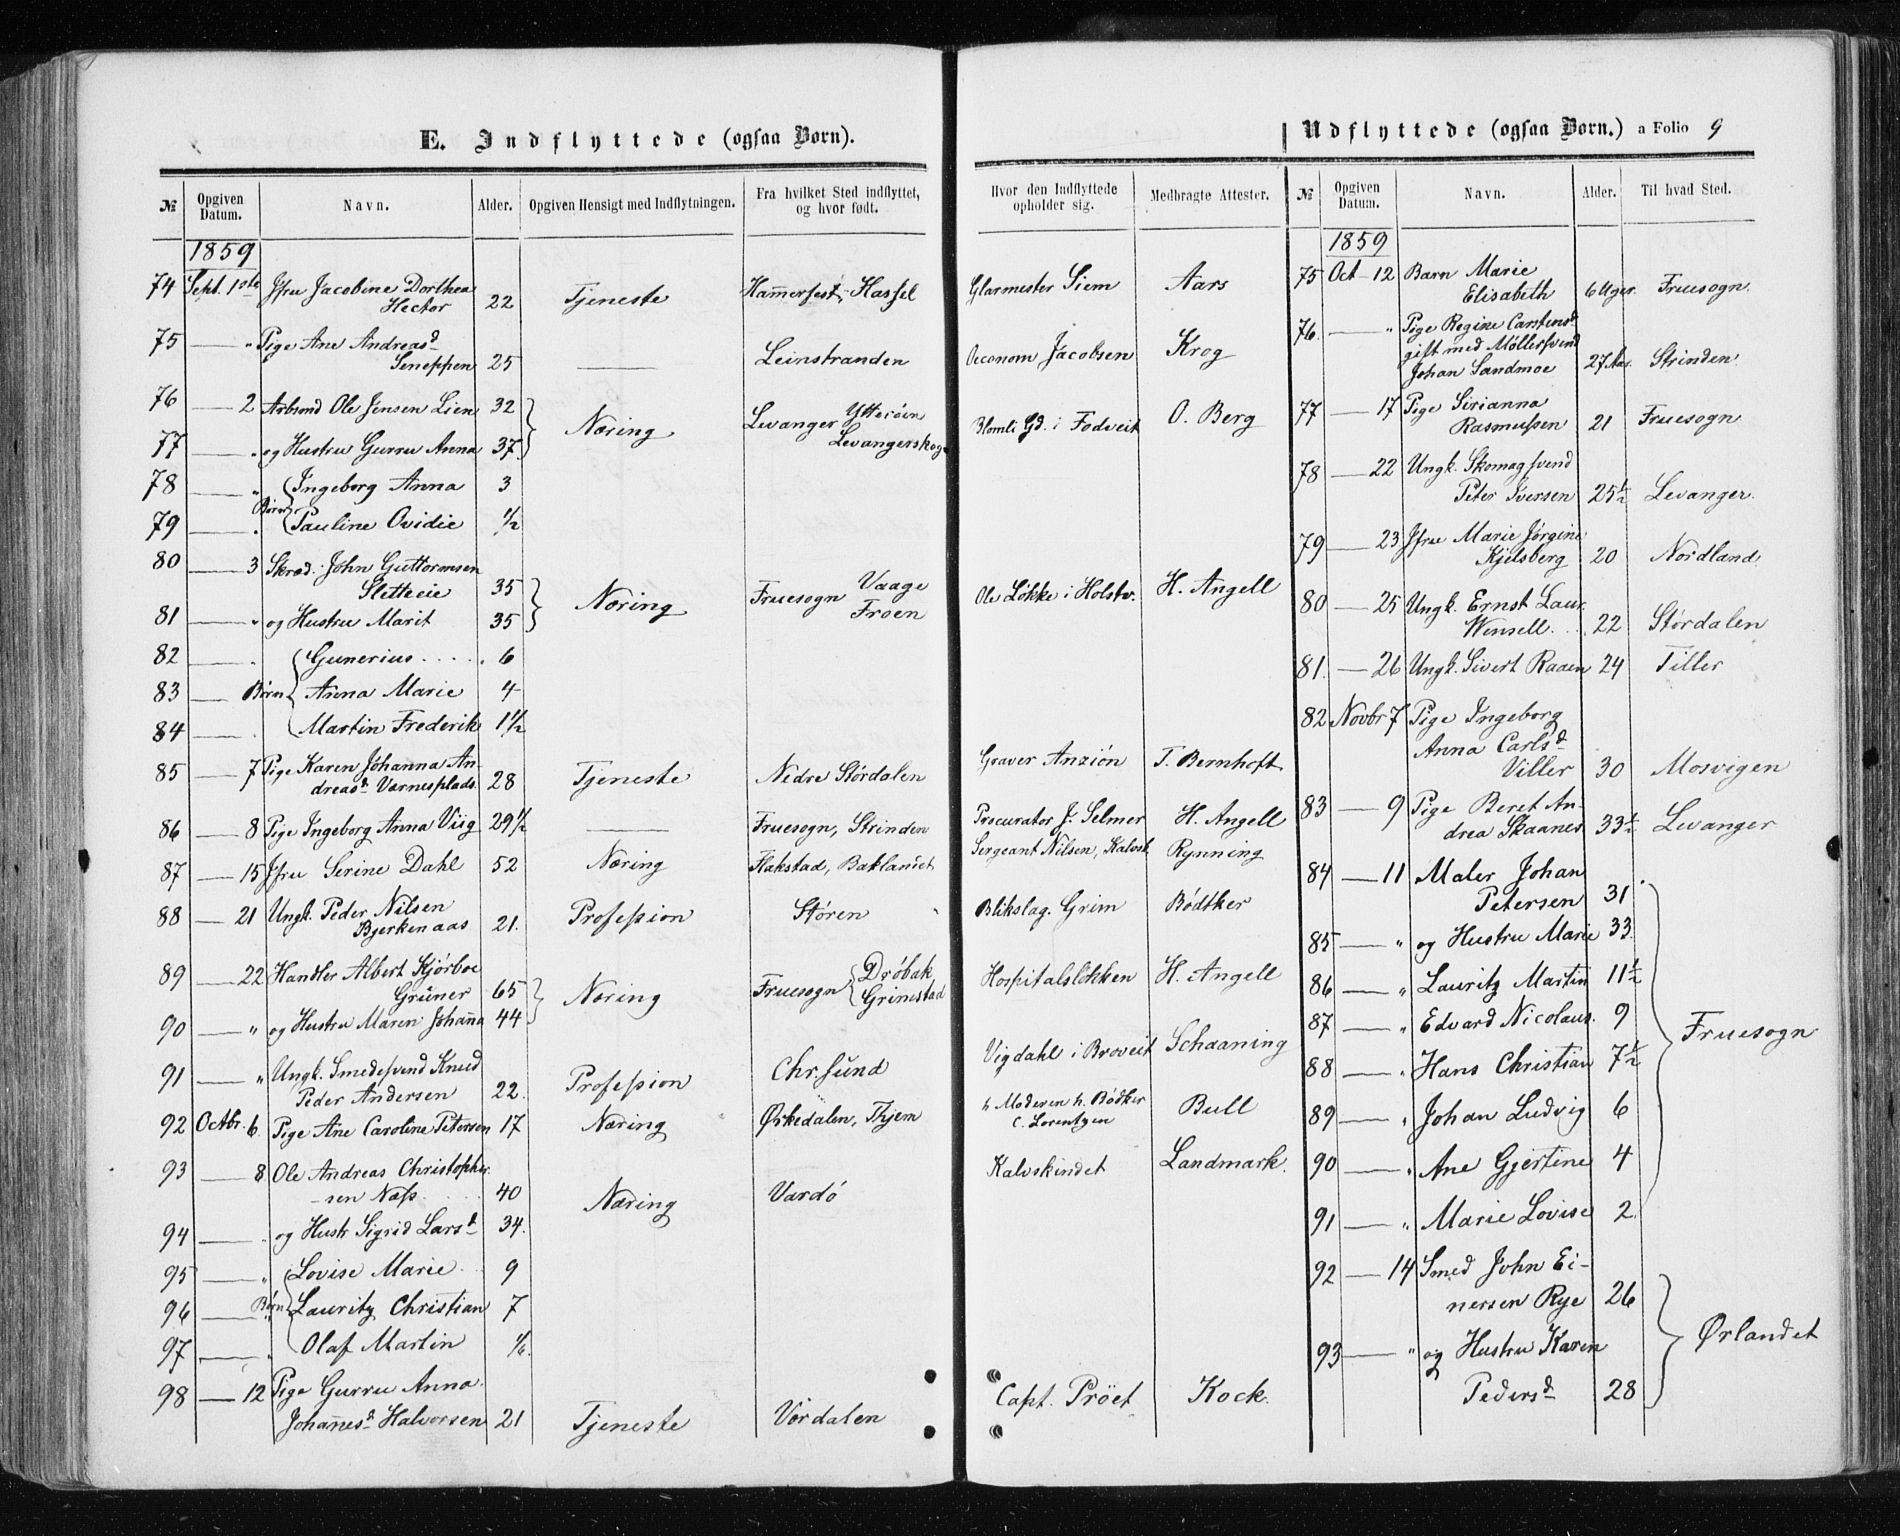 E. Indflyttede (ogsaa Børn).
Udflyttede (ogsaa Børn.) a Folio 9
№ Opgiven Datum. Navn. Alder. Opgiven Hensigt med Indflytningen. Fra hvilket Sted indflyttet, og hvor født.
Hvor den Indflyttede opholder sig. Medbragte Attester.
№ Opgiven Datum. Navn. Alder. Til hvad Sted.
1859
74 Sept. 1ste Jfru Jacobine Dorthea
Hector 22 Tjeneste Ham̄erfest, Hassel Glarmester Siem Aars
75 — " Pige Ane Andreasd
Seneppen 25 — Leinstranden Oeconom Jacobsen Krog
76 — 2 Arbmd Ole Jensen Lien 32 Næring Levanger Ytterøen Blomli Gd. i Fodveit O. Berg
77 — " og Hustru Gurru Anna 37 Levangerskog
78 — " Ingeborg Anna 3
Børn
79 — " Pauline Ovidie ½
80 — 3 Skræd. John Guttormsen
Sletteeie 35 Næring Fruesogn Vaage Ole Løkke i Holstv. H. Angell
81 — " og Hustru Marit 35 Froen
82 — " Gunerius 6
83 — Børn Anna Marie 4
84 — " Martin Frederik 1½
85 — 7 Pige Karen Johanna An-
dreasd Værnesplads 28 Tjeneste Nedre Størdalen Graver Anziøn T. Bernhoft
86 — 8 Pige Ingeborg Anna Viig 29½ — Fruesogn, Strinden Procurator J. Selmer H. Angell
87 — 15 Jfru Serine Dahl 52 Næring Flakstad, Baklandet Sergeant Nilsen, Kalvsk. Rynning
88 — 21 Ungk. Peder Nilsen
Bjerkenaas 21. Profession Støren Blikslag. Grim Bødtker
89 — 22 Handler Albert Kjørboe
Grüner 65 Næring Fruesogn Drøbak Grimstad Hospitalsløkken H. Angell
90 — " og Hustru Maren Johan̄a 44
91 — " Ungk. Smedesvend Knud
Peder Andersen 22. Profession Chr.sund Vigdahl i Broveit Schaaning
92 Octbr. 6 Pige Ane Caroline Petersen 17 Næring Ørkedalen, Thjem h Moderen h. Bødker Bull
C. Lorentzen
93 — 8 Ole Andreas Christopher-
sen Næss 40 Næring Vardø Kalvskindet Landmark.
94 — " og Hustr Sigrid Larsd 34.
95 — " Lovise Marie 9
96 — " Børn Lauritz Christian 7
97 — " Olaf Martin ⅙.
98 — 12 Pige Gurru Anna
Johan̄esd Halvorsen 21 Tjeneste Værdalen Capt. Prøet Kock.
1859
75 Oct 12 Barn Marie
Elisabeth 6 Uger. Fruesogn.
76. — " Pige Regine Carstensd
gift med Møllersvend
Johan Sandmoe 27 Aar. Strinden
77 — 17 Pige Sirianna
Rasmussen 21 Fruesogn
78 — 22 Ungk. Skomagsvend
Peter Iversen 25½ Levanger.
79 — 23 Jfru Marie Jørgine
Kjelsberg 20 Nordland
80 — 25 Ungk. Ernst Laur.
Wensell 22 Størdalen
81. — 26 Ungk. Sivert Raaen 24 Tiller
82 Novbr 7 Pige Ingeborg
Anna Carlsd
Viller 30 Mosvigen
83 — 9 Pige Beret An-
drea Skaanes 33½ Levanger
84 — 11 Maler Johan
Petersen 31
85 — " og Hustru Marie 33.
86 — " Lauritz Martin 11½
87 — " Edvard Nicolaus 9 Fruesogn
88 — " Hans Christian 7½
89 — " Johan Ludvig 6
90 — " Ane Gjertine 4
91 — " Marie Lovise 2
92 — 14 Smed John Ei-
nersen Rye 26 Ørlandet
93 — " og Hustru Karen
Pedersd 28